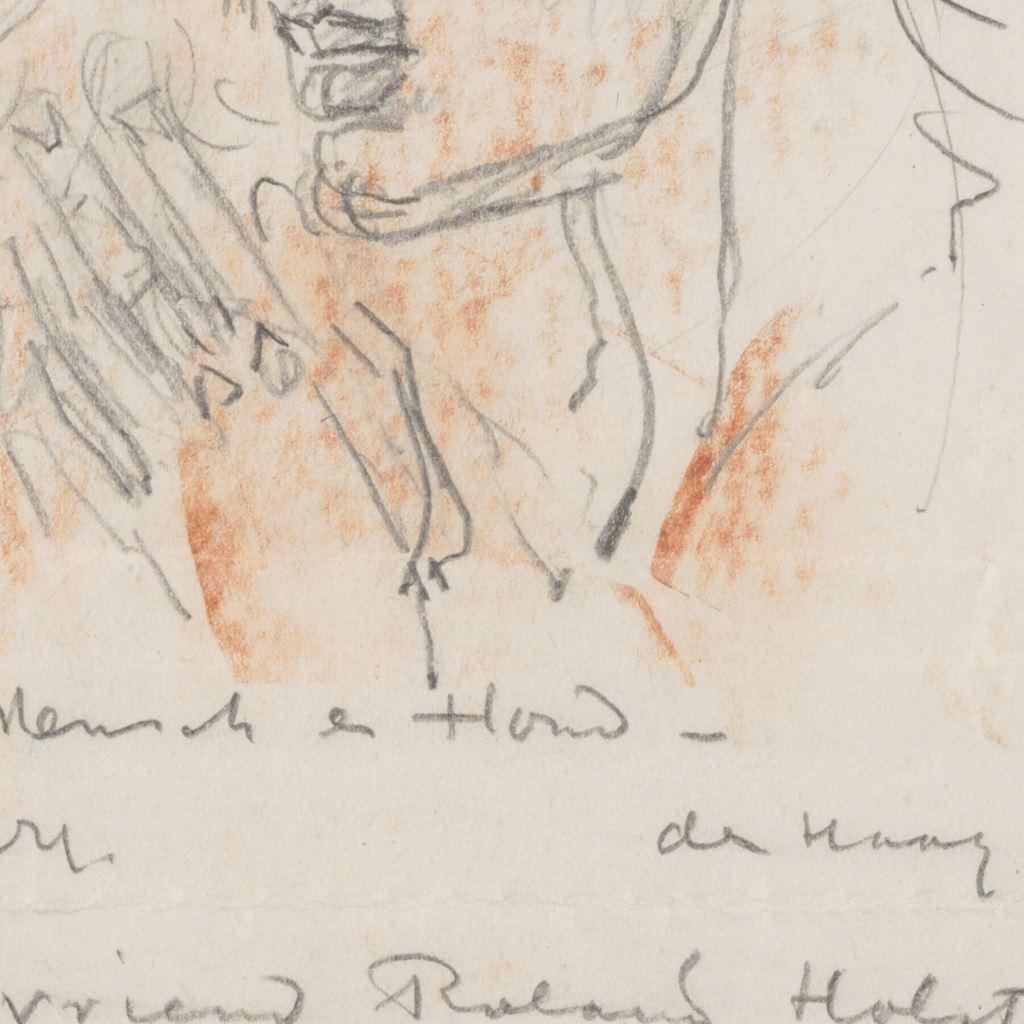 Mensch en Hond -
den Haag
vriend Roland Holst